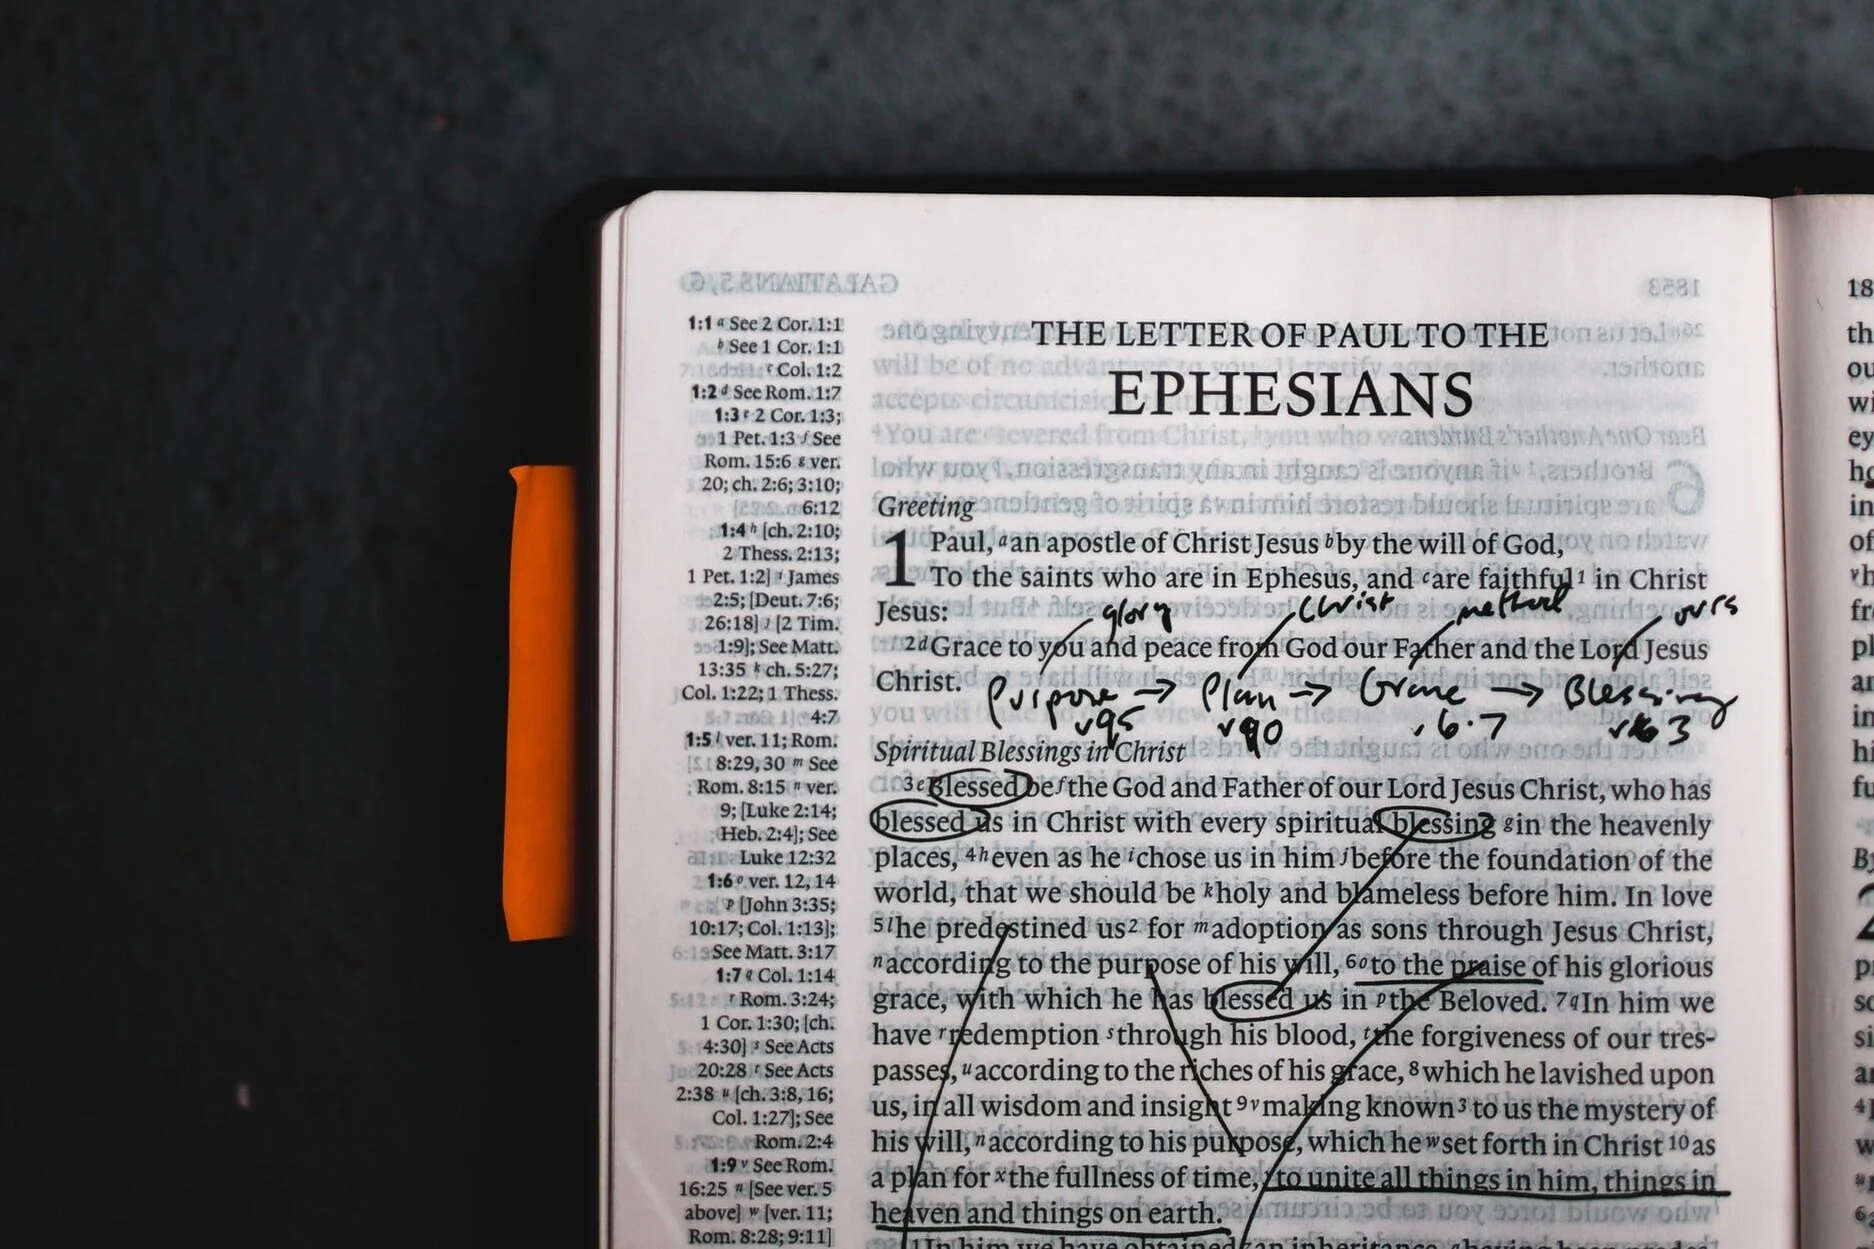 1:1 a See 2 Cor. 1:1
b See 1 Cor. 1:1
c Col. 1:2
1:2 d See Rom. 1:7
1:3 e 2 Cor. 1:3;
1 Pet. 1:3 f See
Rom. 15:6 g ver.
20; ch. 2:6; 3:10;
6:12
1:4 h [ch. 2:10;
2 Thess. 2:13;
1 Pet. 1:2] i James
2:5; [Deut. 7:6;
26:18] j [2 Tim.
1:9]; See Matt.
13:35 k ch. 5:27;
Col. 1:22; 1 Thess.
4:7
1:5 l ver. 11; Rom.
8:29, 30 m See
Rom. 8:15 n ver.
9; [Luke 2:14;
Heb. 2:4]; See
Luke 12:32
1:6 o ver. 12, 14
p [John 3:35;
10:17; Col. 1:13];
See Matt. 3:17
1:7 q Col. 1:14
r Rom. 3:24;
1 Cor. 1:30; [ch.
4:30] s See Acts
20:28 t See Acts
2:38 u [ch. 3:8, 16;
Col. 1:27]; See
Rom. 2:4
1:9 v See Rom.
16:25 n [See ver. 5
above] w [ver. 11;
Rom. 8:28; 9:11]
THE LETTER OF PAUL TO THE
EPHESIANS
Greeting
1 Paul, a an apostle of Christ Jesus b by the will of God,
To the saints who are in Ephesus, and c are faithful 1 in Christ
Jesus:
glory Christ method ours
2 d Grace to you and peace from God our Father and the Lord Jesus
Christ.
Purpose → Plan → Grace → Blessing
6-7
Spiritual Blessings in Christ
3 e Blessed be f the God and Father of our Lord Jesus Christ, who has
blessed us in Christ with every spiritual blessing g in the heavenly
places, 4 h even as he i chose us in him j before the foundation of the
world, that we should be k holy and blameless before him. In love
5 l he predestined us 2 for m adoption as sons through Jesus Christ,
n according to the purpose of his will, 6 o to the praise of his glorious
grace, with which he has blessed us in p the Beloved. 7 q In him we
have r redemption s through his blood, t the forgiveness of our tres-
passes, u according to the riches of his grace, 8 which he lavished upon
us, in all wisdom and insight 9 v making known 3 to us the mystery of
his will, n according to his purpose, which he w set forth in Christ 10 as
a plan for x the fullness of time, to unite all things in him, things in
heaven and things on earth.
In him we have obtained an inheritance,